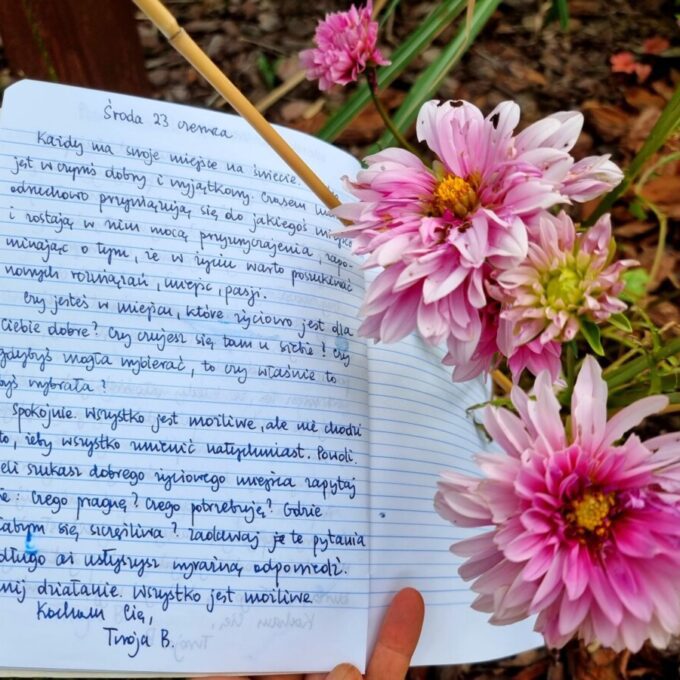 Środa 23 czerwca
Każdy ma swoje miejsce na świecie.
jest w czymś dobry i wyjątkowy. Czasem
odruchowo przywiązują się do jakiegoś
i zostają w nim mocą przyzwyczajenia, zapo-
minając o tym, że w życiu warto poszukiwać
nowych rozwiązań, miejsc, pasji.
Czy jesteś w miejscu, które życiowo jest dla
Ciebie dobre? Czy czujesz się tam u siebie? Czy
gdybyś mogła wybierać, to czy właśnie to
byś wybrała?
Spokojnie. Wszystko jest możliwe, ale nie chodzi
to, żeby wszystko zmienić natychmiast. Powoli.
eli szukasz dobrego życiowego miejsca zapytaj
ie: Czego pragnę? Czego potrzebuję? Gdzie
łabym się szczęśliwa? Zadawaj je te pytania
długo aż usłyszysz wyraźną odpowiedź.
nij działanie. Wszystko jest możliwe
Kocham Cię,
Twoja B.